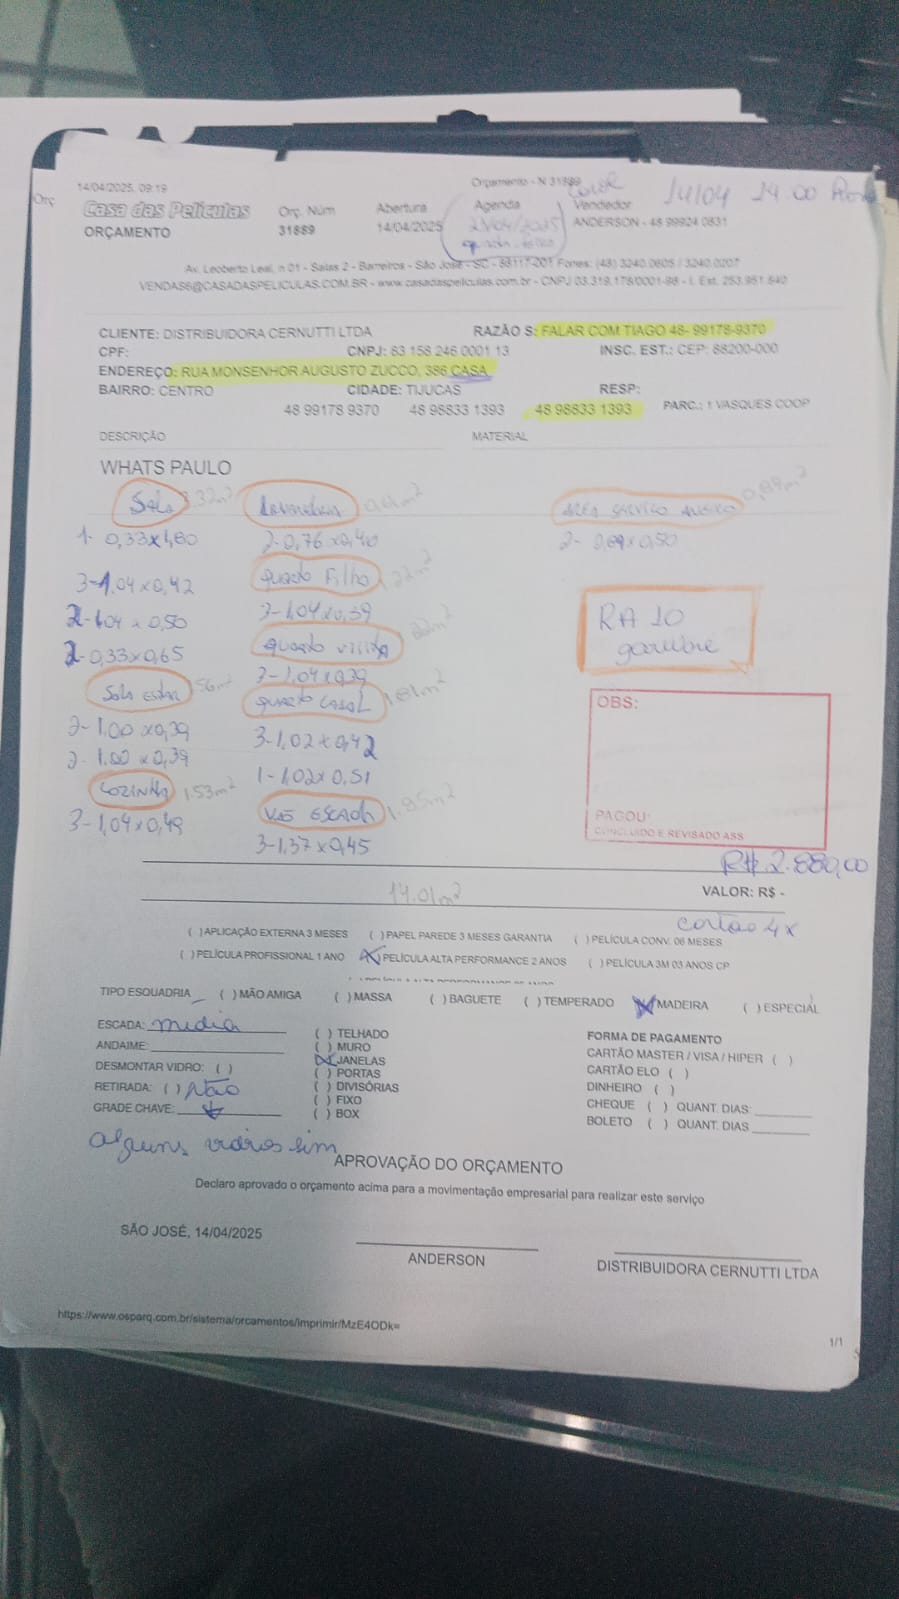 14/04/2025, 09:19
Orçamento - N 31889
14/04 14:00
Casa das Películas
Orç. Núm
Abertura
Agenda
Vendedor
ORÇAMENTO
31889
14/04/2025
ANDERSON - 48 99924 0831
Av. Leoberto Leal, n 01 - Salas 2 - Barreiros - São José - SC - 88117-001 Fones: (48) 3240.0605 / 3240.0207
VENDAS6@CASADASPELICULAS.COM.BR - www.casadaspeliculas.com.br - CNPJ 03.319.178/0001-98 - I. Est. 253.951.640
CLIENTE: DISTRIBUIDORA CERNUTTI LTDA
RAZÃO S: FALAR COM TIAGO 48- 99178-9370
CPF:
CNPJ: 83 158 246 0001 13
INSC. EST.: CEP: 88200-000
ENDEREÇO: RUA MONSENHOR AUGUSTO ZUCCO, 386 CASA
BAIRRO: CENTRO
CIDADE: TIJUCAS
RESP:
48 99178 9370 48 98833 1393 48 98833 1393 PARC.: 1 VASQUES COOP
DESCRIÇÃO
MATERIAL
WHATS PAULO
Sala
1- 0,33x1,60
3-1,04x0,42
2-1,04x0,50
2-0,33x0,65
Sala Estar
2-1.00x0,39
2-1.00x0,39
Cozinha 1,53m²
3-1,04x0,49
2-0,76x0,40
Quarto Filho
3-1,04x0,39
Quarto Visita
3-1,04x0,39
Quarto Casal
3-1,02x0,42
1-1,02x0,51
Vão Escada 1.85m²
3-1,37x0,45
0,89m²
2-0,89x0,50
RA 10
OBS:
PAGOU:
CONCLUIDO E REVISADO ASS
R$ 2.880,00
14.01m²
VALOR: R$ -
cartão 4x
( )APLICAÇÃO EXTERNA 3 MESES ( )PAPEL PAREDE 3 MESES GARANTIA ( )PELÍCULA CONV. 06 MESES
( )PELÍCULA PROFISSIONAL 1 ANO (X)PELÍCULA ALTA PERFORMANCE 2 ANOS ( )PELÍCULA 3M 03 ANOS CP
TIPO ESQUADRIA ( )MÃO AMIGA ( )MASSA ( )BAGUETE ( )TEMPERADO (X)MADEIRA ( )ESPECIAL
ESCADA: media
ANDAIME:
DESMONTAR VIDRO: ( )
RETIRADA: ( ) Não
GRADE CHAVE:
alguns vidros sim
( ) TELHADO
( ) MURO
(X) JANELAS
( ) PORTAS
( ) DIVISÓRIAS
( ) FIXO
( ) BOX
FORMA DE PAGAMENTO
CARTÃO MASTER / VISA / HIPER ( )
CARTÃO ELO ( )
DINHEIRO ( )
CHEQUE ( ) QUANT. DIAS:
BOLETO ( ) QUANT. DIAS
APROVAÇÃO DO ORÇAMENTO
Declaro aprovado o orçamento acima para a movimentação empresarial para realizar este serviço
SÃO JOSÉ, 14/04/2025
ANDERSON
DISTRIBUIDORA CERNUTTI LTDA
https://www.osparq.com.br/sistema/orcamentos/imprimir/MzE4ODk=
1/1